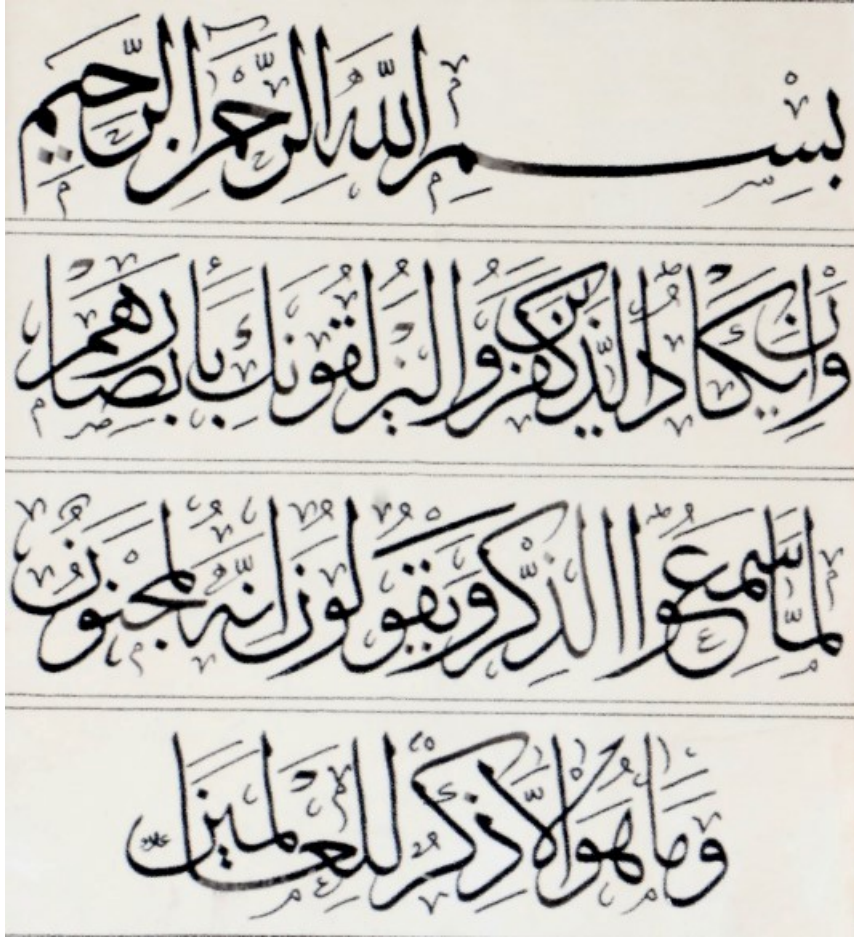 بِسْمِ اللَّهِ الرَّحْمَنِ الرَّحِيمِ
وَإِنْ يَكَادُ الَّذِينَ كَفَرُوا لَيُزْلِقُونَكَ بِأَبْصَارِهِمْ
لَمَّا سَمِعُوا الذِّكْرَ وَيَقُولُونَ إِنَّهُ لَمَجْنُونٌ
وَمَا هُوَ إِلَّا ذِكْرٌ لِلْعَالَمِينَ